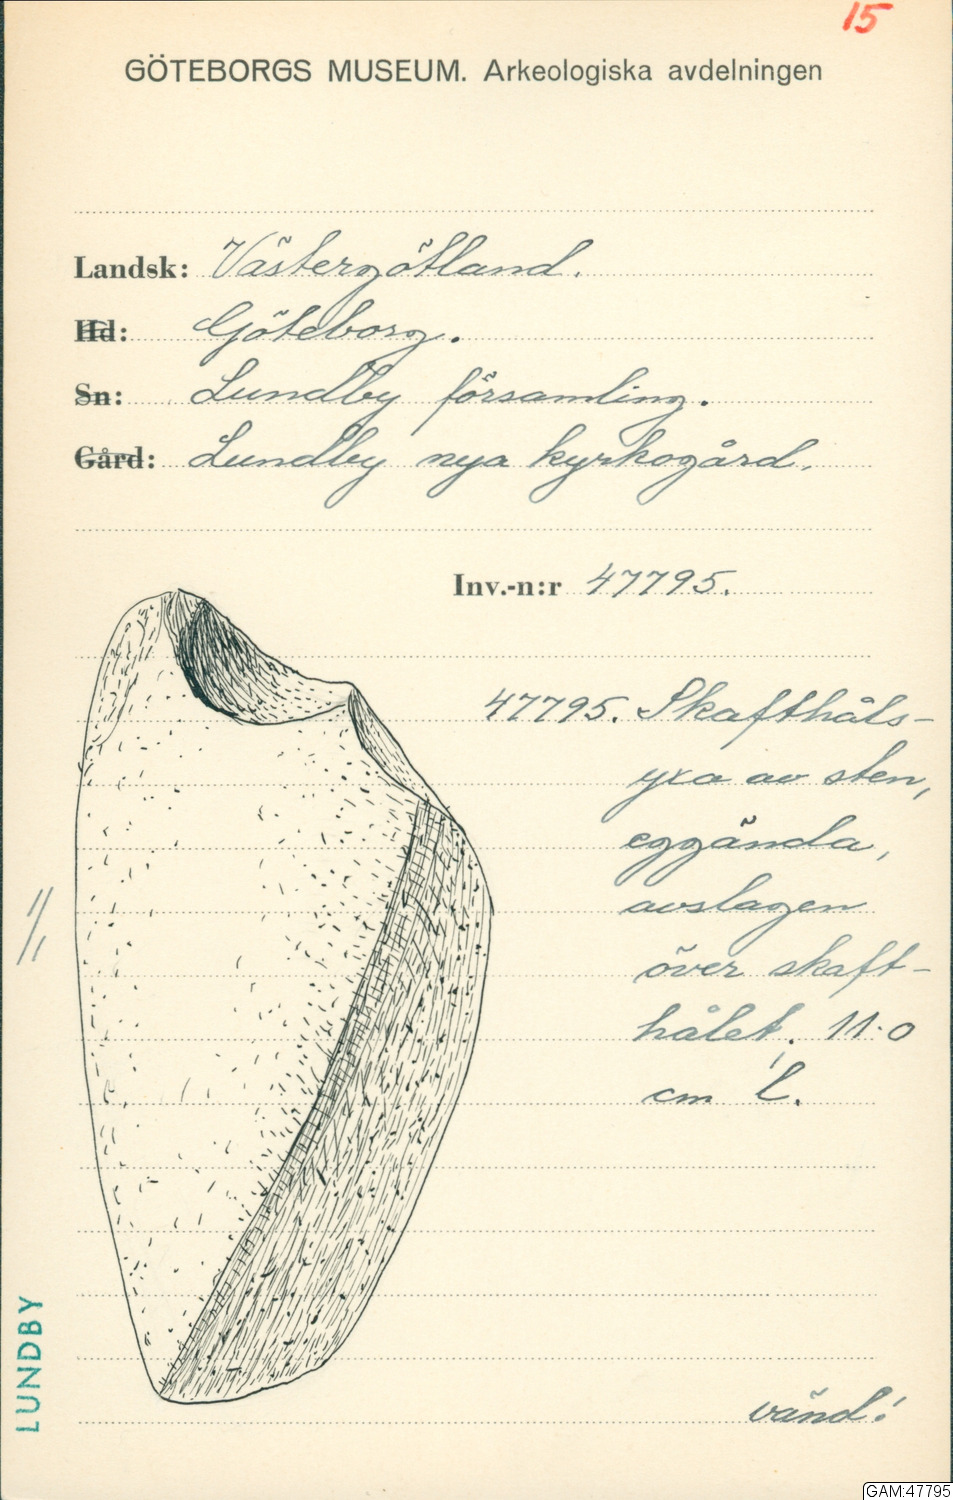 15
GÖTEBORGS MUSEUM. Arkeologiska avdelningen
Landsk: Västergötland.
Hd: Göteborg.
Sn: Lundby församling.
Gård: Lundby nya kyrkogård.
Inv.-n:r 47795.
47795. Skafthåls-
yxa av sten,
eggända,
avslagen
över skaft-
hålet. 11.0
cm l.
1/1
LUNDBY
vänd!
GAM:47795